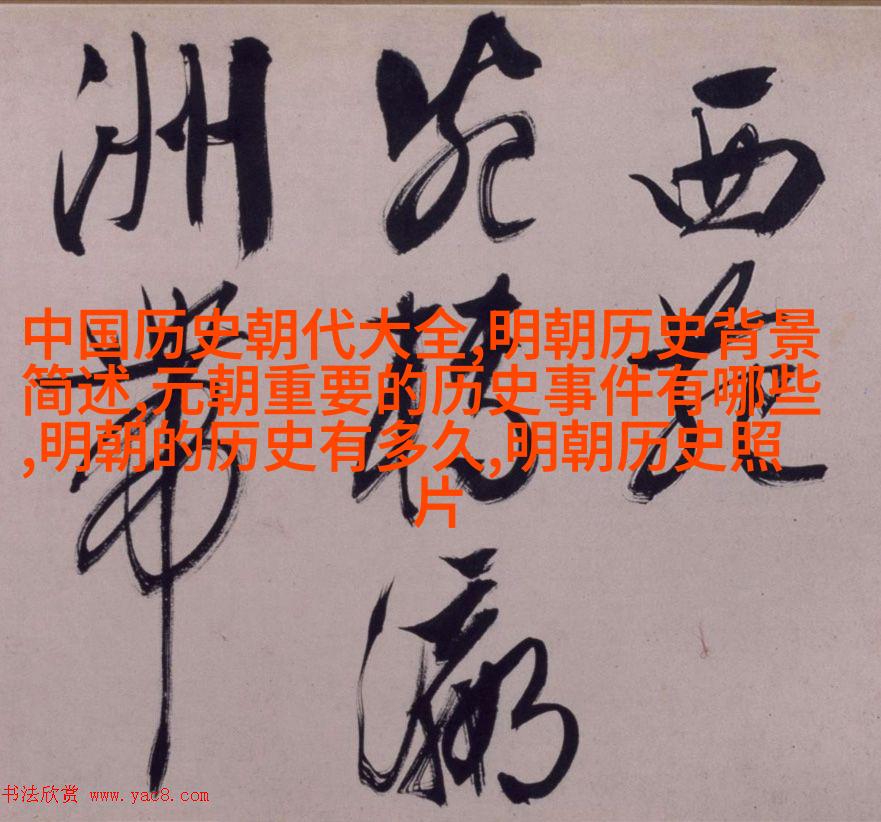 中国历史朝代大全,明朝历史背景
简述,元朝重要的历史事件有哪些
,明朝的历史有多久,明朝历史照
片
西
瀛
洲帶
书法欣赏 www.yac8.com